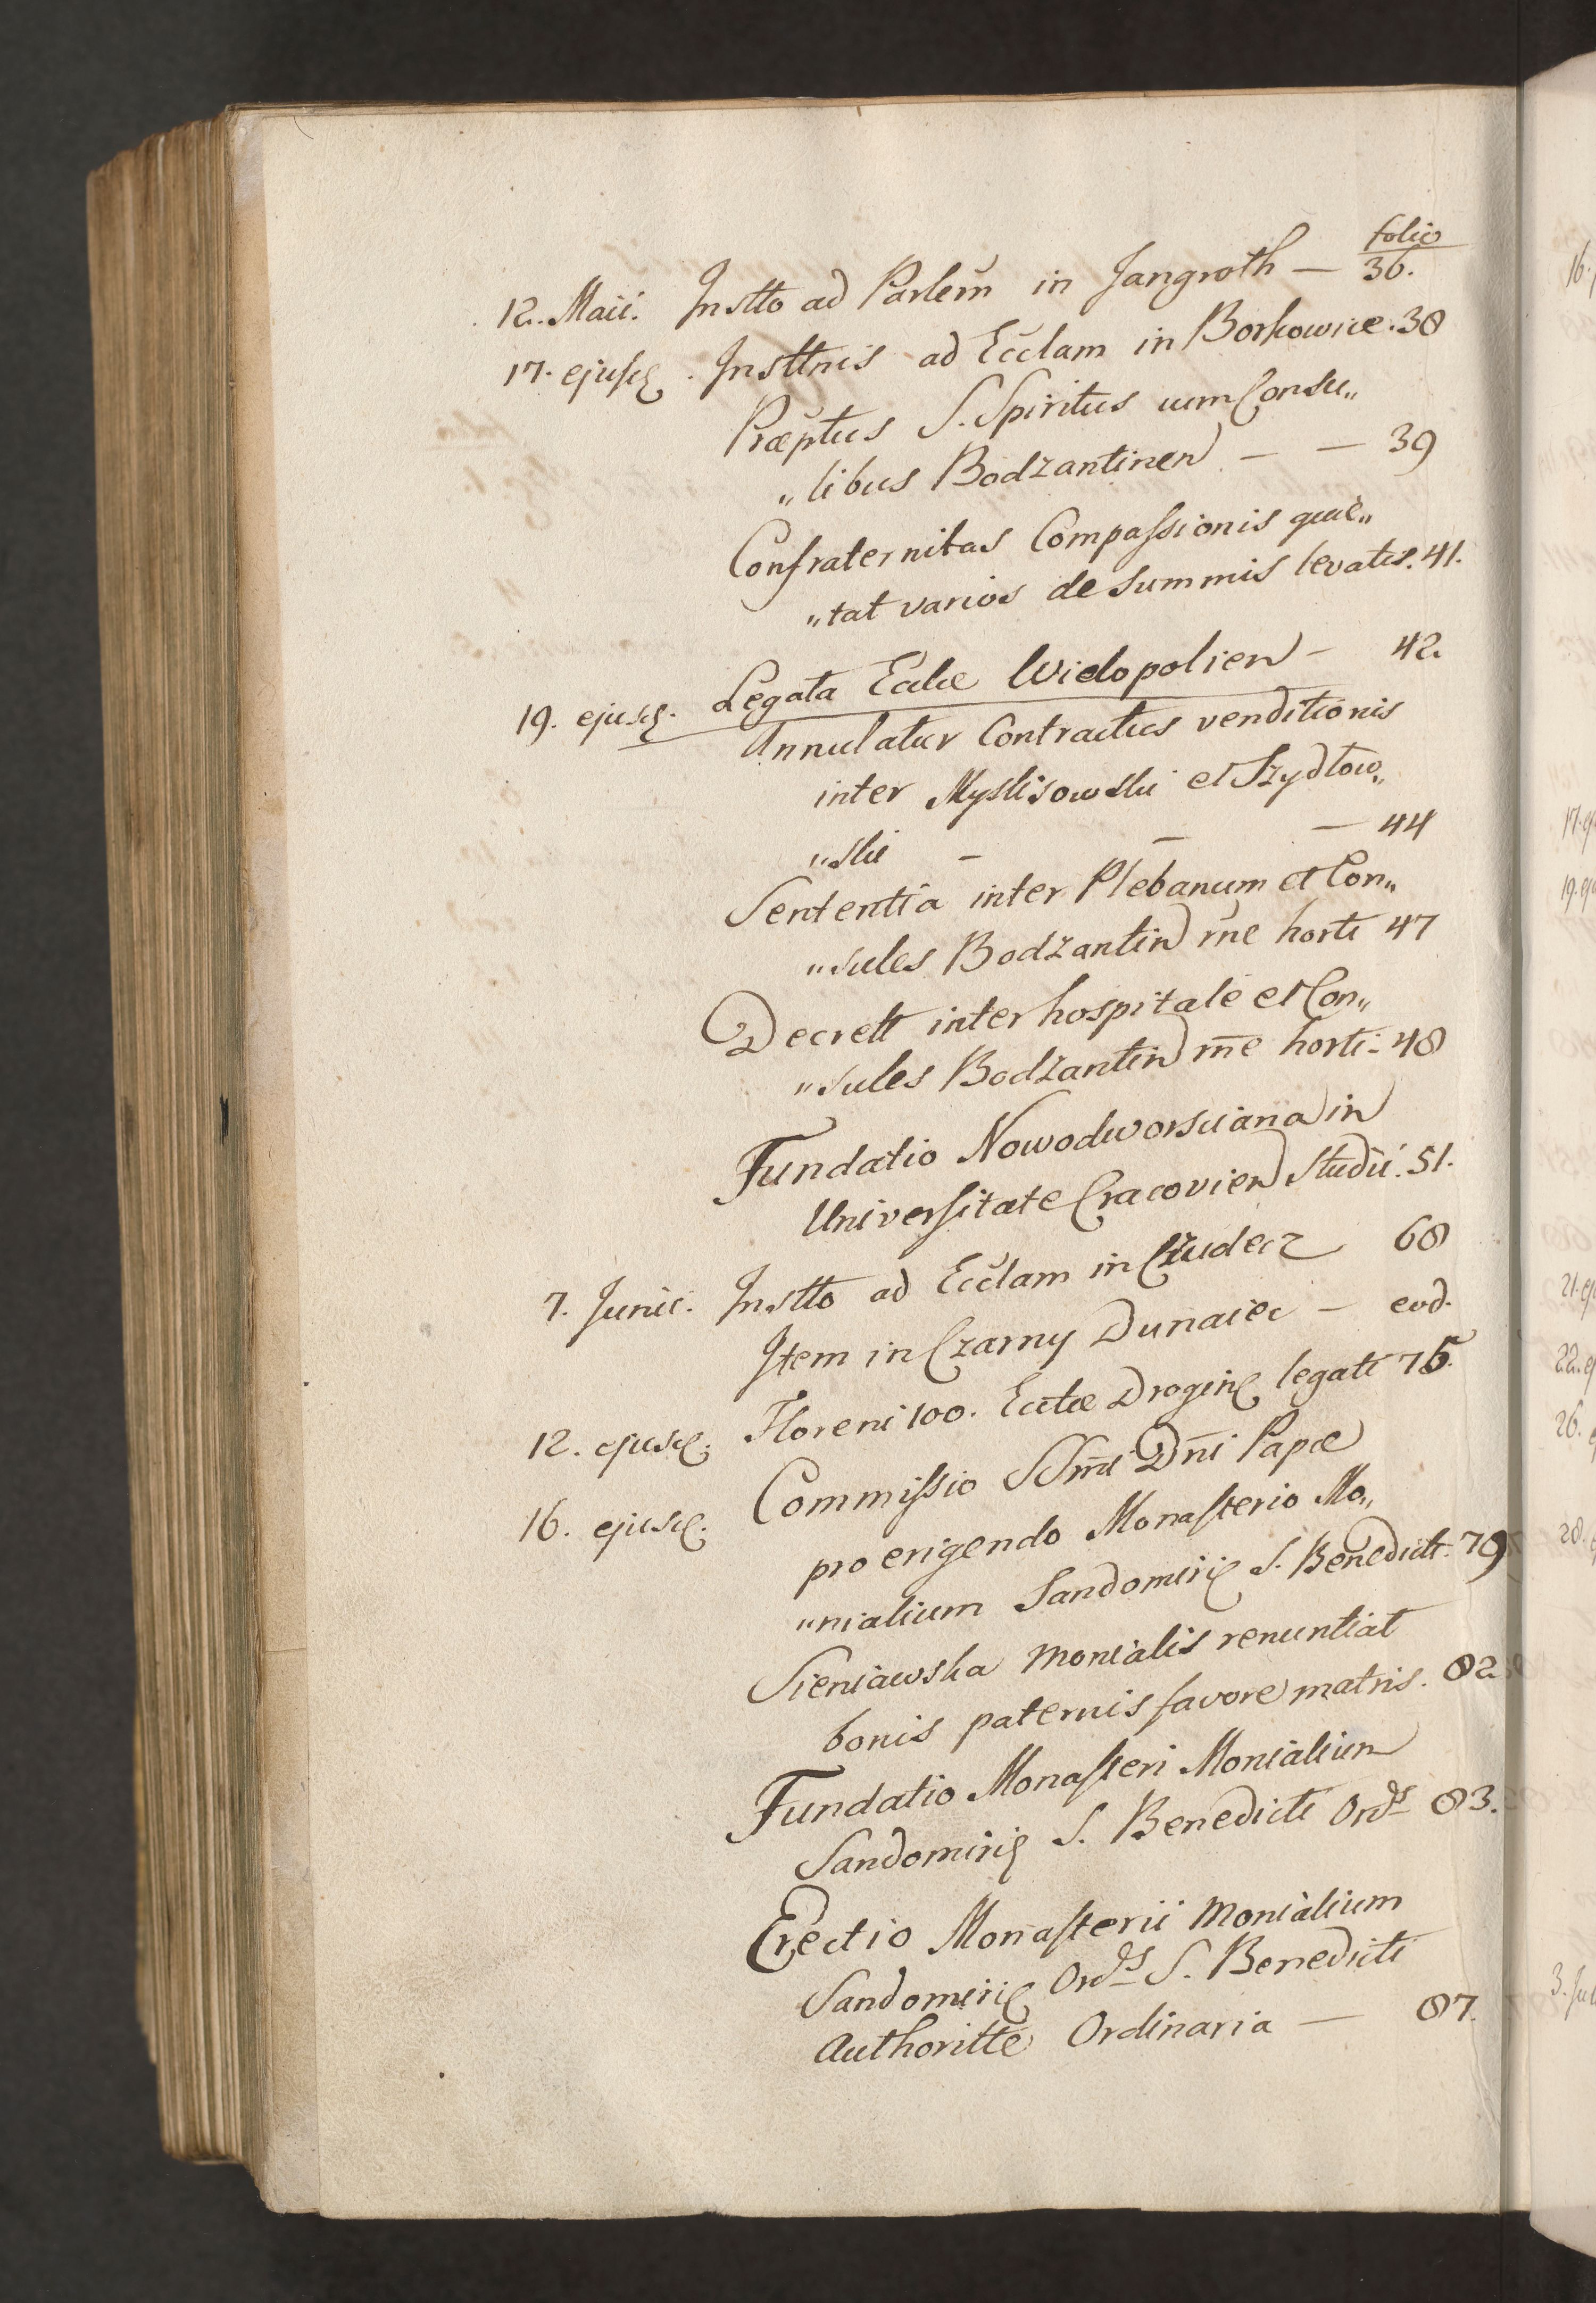 folio
12. Maii. Instto ad Parlem̄ in Jangroth — 36.
17. ejusd. Insttnis ad Ecclam in Borkowice. 38
Præptus S. Spiritus cum Consu„
„libus Bodzantinen — — 39
Confraternitas Compaſsionis quie„
„tat varios de summis levatis. 41.
19. ejusd. Legata Eccłæ Wielopolien — 42.
Annulatur Contractus venditionis
inter Myslisowski et Szydłow„
„ski — — — 44
Sententia inter Plebanum et Con„
„sules Bodzantin rñe horti 47
Decrett inter hospitale et Con„
„sules Bodzantin rñe horti - 48
Fundatio Nowodworsciana in
Universitate Cracovien Studii. 51.
7. Junii. Instto ad Ecclam in Czudecz 68
Item in Czarny Dunaiec — eod.
12. ejusd. Floreni 100. Eccłæ Drogin legati 75
16. ejusd. Commiſsio SSmi Dñi Papæ
pro erigendo Monaſterio Mo„
„nialium Sandomiriæ S. Benedicti. 79
Sieniawska Monialis renuntiat
bonis paternis favore matris. 82
Fundatio Monaſteri Monialium
Sandomiriæ S. Benedicti Ords 83.
Erectio Monaſterii Monialium
Sandomiriæ Ords S. Benedicti
Authoritte Ordinaria — 87.